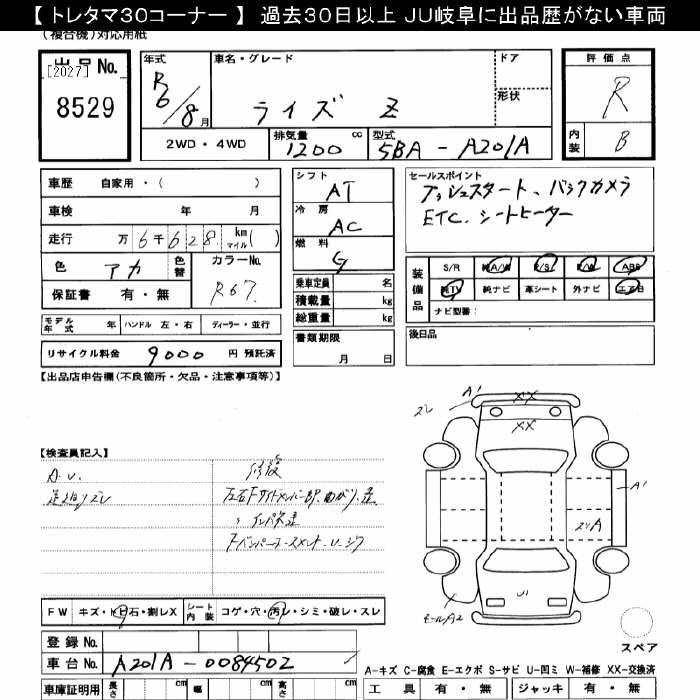 【 トレタマ30コーナー 】 過去30日以上 JU岐阜に出品歴がない車両
(複合機)対応用紙
出品No.
[2027]
8529
年式
R6/8月
車名・グレード
ライズ Z
ドア
形状
評価点
R
内装
B
2WD・4WD
排気量 cc
1200
型式
5BA-A201A
車歴 自家用・( )
車検 年 月
走行 万6千628 km マイル( )
色 アカ 色替
カラーNo.
R67
保証書 有・無
モデル年式 年 ハンドル 左・右 ディーラー・並行
リサイクル料金 9000 円 預託済
シフト
AT
冷房
AC
燃料
G
乗車定員 名
積載量 kg
総重量 kg
書類期限
月 日
セールスポイント
プッシュスタート、バックカメラ
ETC、シートヒーター
装備品
S/R 純A/W P/S P/W ABS
純TV 純ナビ 革シート 外ナビ エアB
ナビ型番:
後日品
【出品店申告欄(不良箇所・欠品・注意事項等)】
【検査員記入】
A.U.
修復
FW キズ・トビ石・割レX シート内装 コゲ・穴・汚レ・シミ・破レ・スレ
登録No.
車台No. A201A-0084502
車庫証明用 長さ cm 幅 cm 高さ cm
スレ
A1
XX
XX
A1
スリA
U1
モールA2
スペア
A-キズ C-腐食 E-エクボ S-サビ U-凹ミ W-補修 XX-交換済
工具 有・無 ジャッキ 有・無